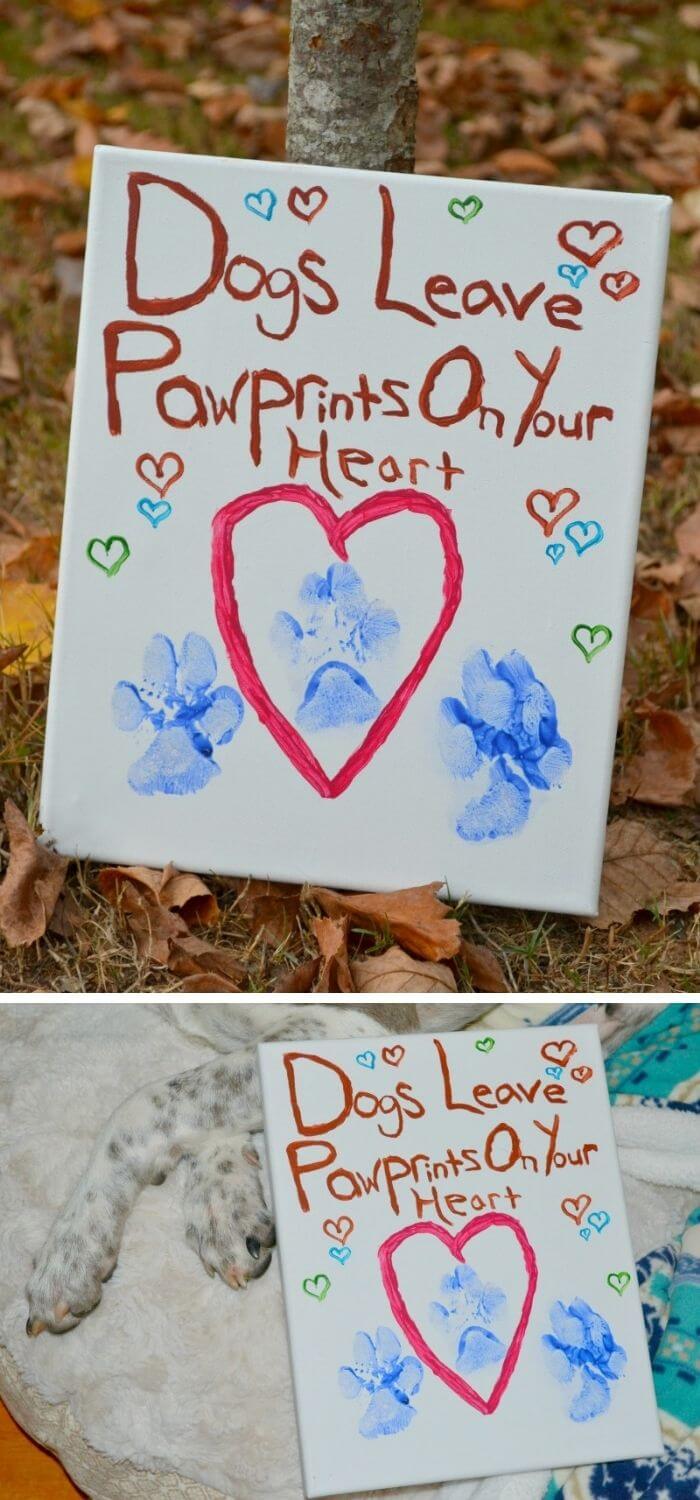 Dogs Leave
Pawprints On Your
Heart
Dogs Leave
Pawprints On Your
Heart